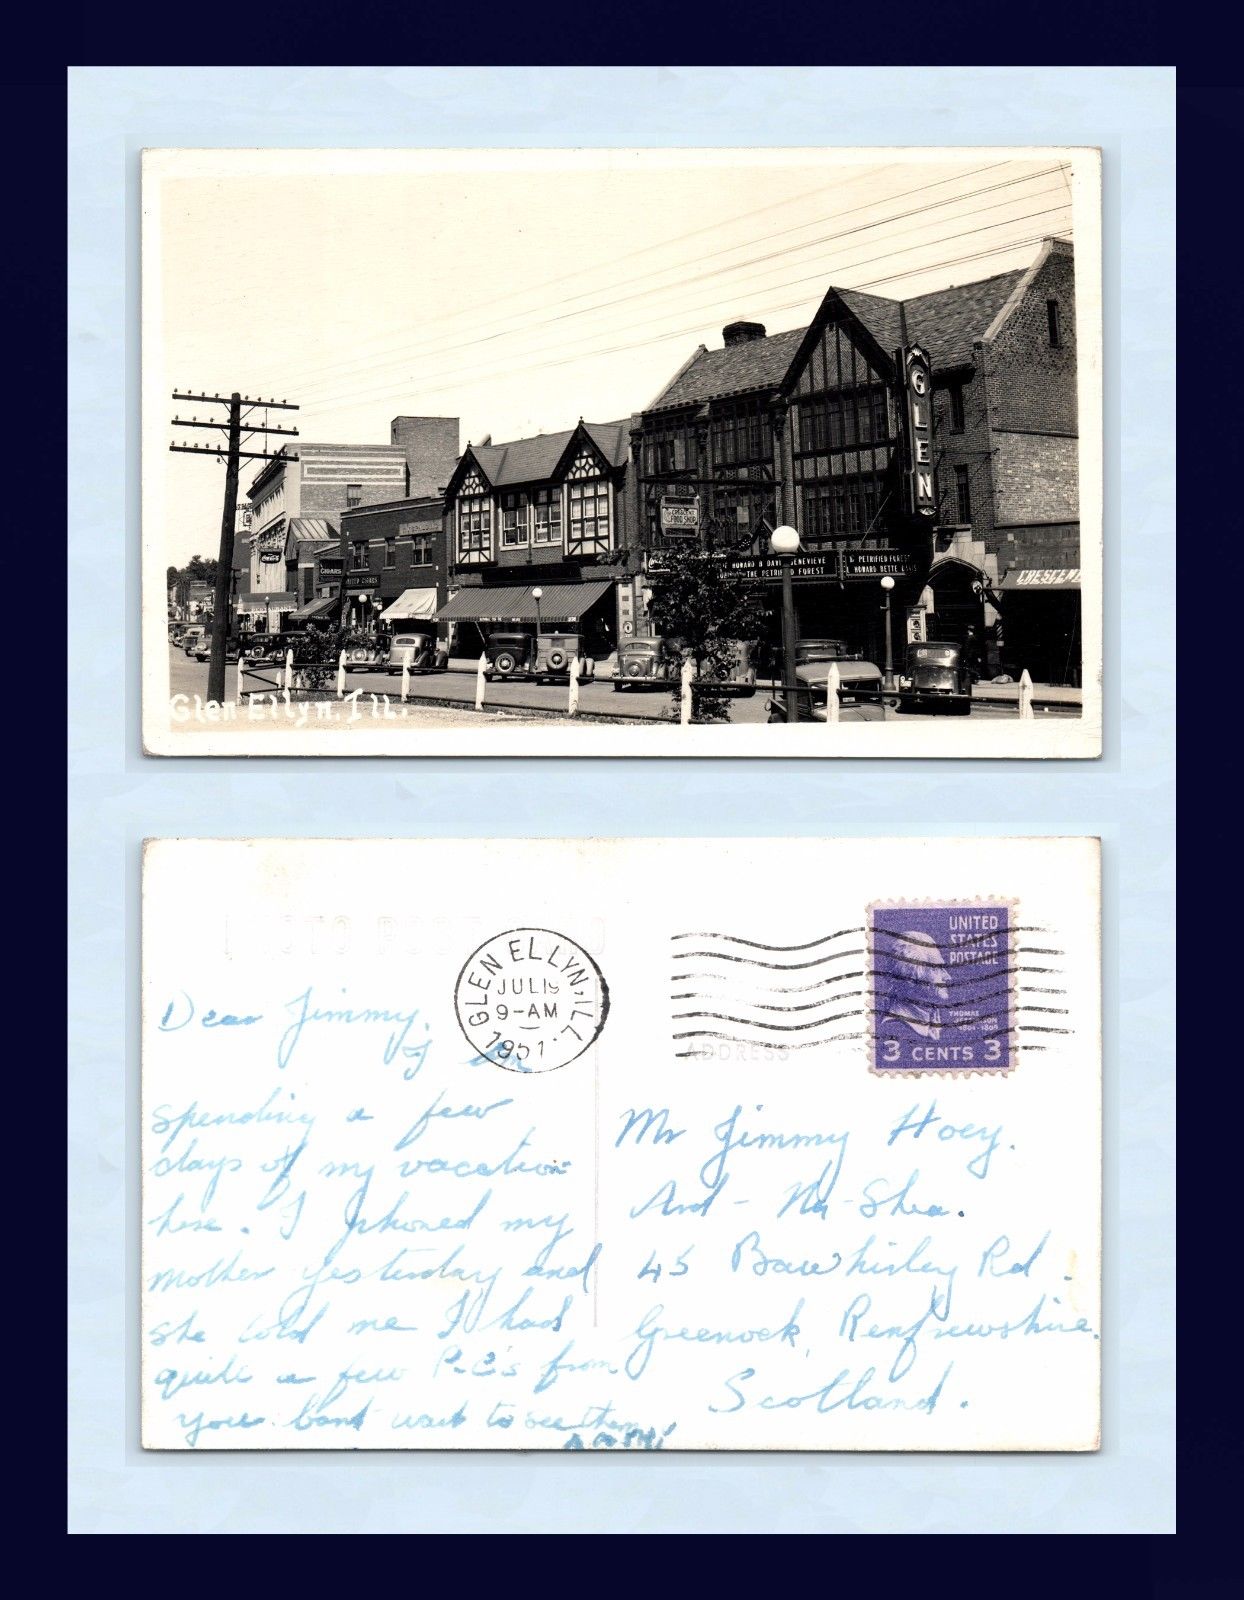 GLEN
FOOD SHOP
HOWARD & DAVIS GENEVIEVE
THE PETRIFIED FOREST
PETRIFIED FOREST
HOWARD BETTE DAVIS
CRESCENT
CIGARS
Coca-Cola
Glen Ellyn, Ill.
PHOTO POST CARD
GLEN ELLYN, ILL.
JUL 19
9-AM
1951
UNITED
STATES
POSTAGE
THOMAS
JEFFERSON
3 CENTS 3
ADDRESS
Dear Jimmy,
I am
spending a few
days of my vacation
here. I phoned my
mother yesterday and
she told me I had
quite a few P.C's from
you. Cant wait to see them
Mr Jimmy Hoey.
Ard-Na-Shea.
45 Bawhirley Rd.
Greenock, Renfrewshire.
Scotland.